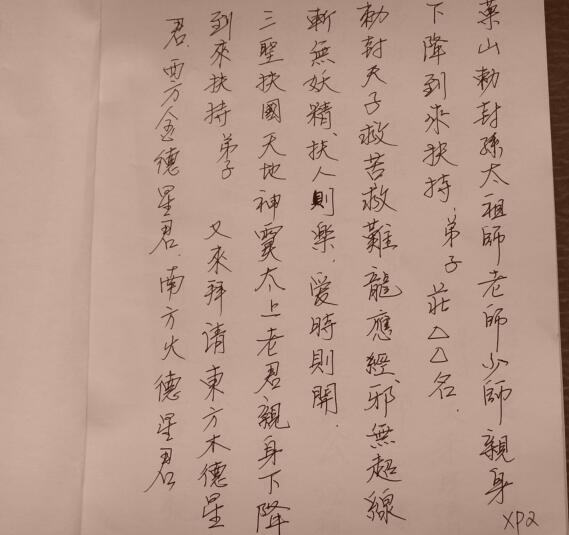 藥山勅封孫太祖師老師少師親身
下降到來扶持，弟子莊△△名．
勅封天子救苦救難龍應經邪無超線
斬無妖精，扶人則樂，愛時則開．
三聖扶國天地神靈太上老君親身下降
到來扶持弟子 又來拜请東方木德星
君．西方金德星君．南方火德星君
XP2